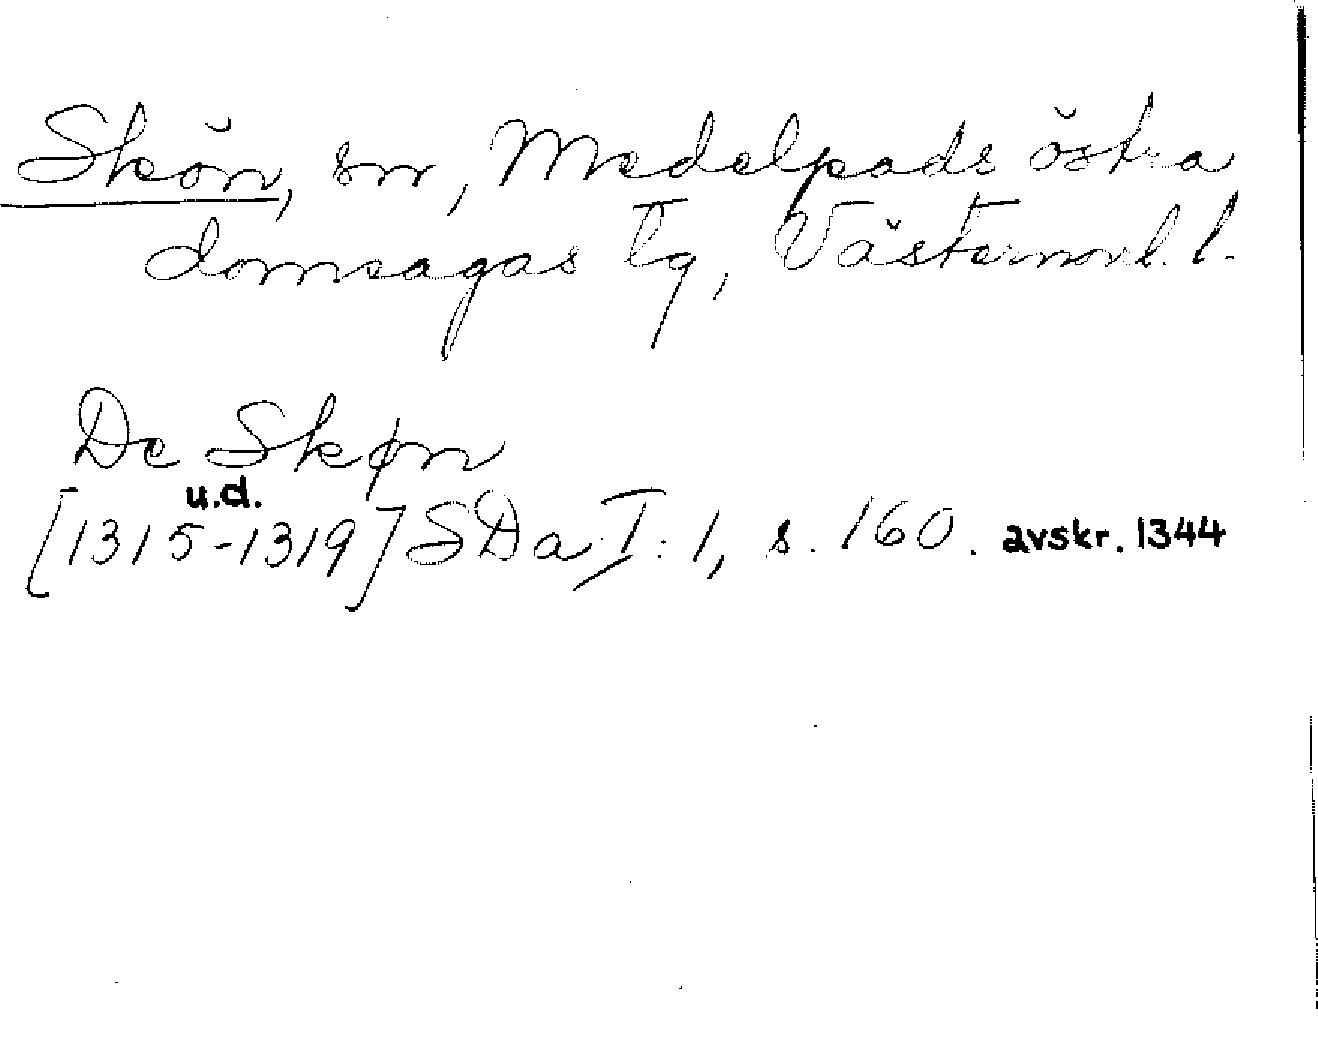 Skön, sn, Medelpads östra
domsagas tg, Västernorrl. l.
De Skøn
u.d.
[1315-1319] SDa I: 1, s. 160. avskr. 1344